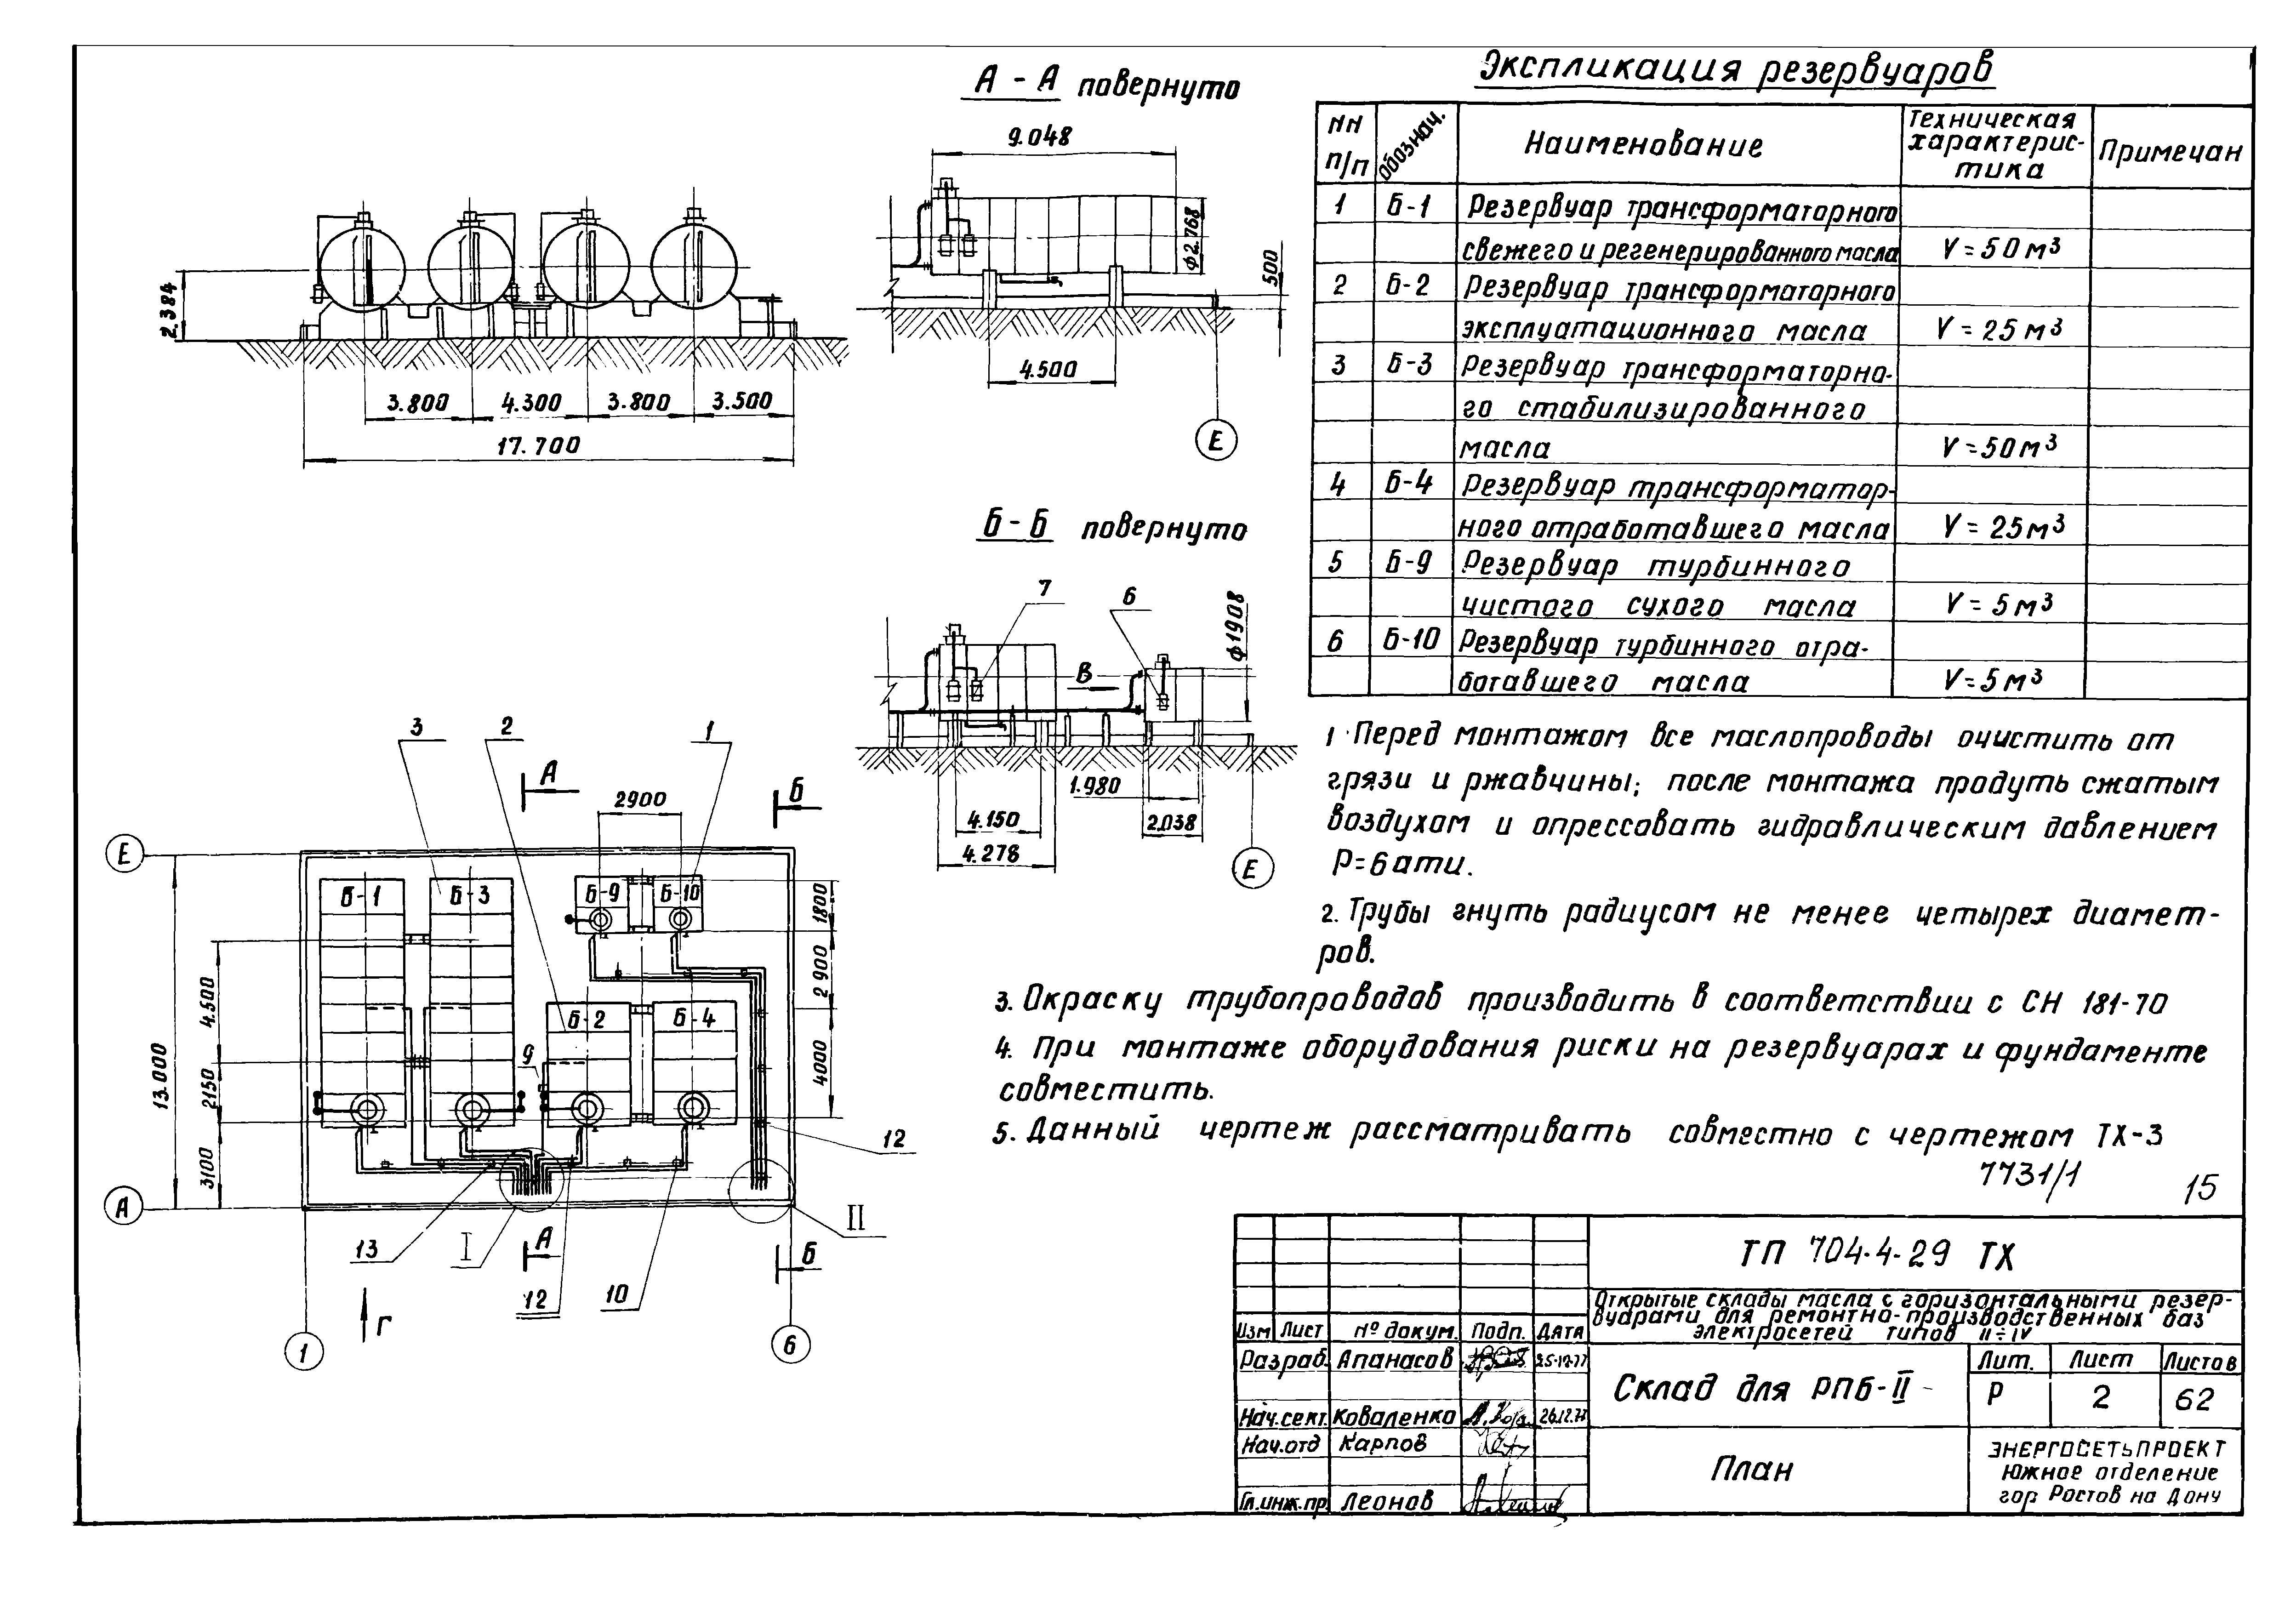 А - А повернуто
9.048
ф2.768
500
4.500
Е
2.384
3.800
4.300
3.800
3.500
17.700
Б - Б повернуто
7
6
ф1908
В
1.980
4.150
2.038
4.278
Е
3
2
1
А
Б
2900
Е
Б-1
Б-3
Б-9
Б-10
1800
2900
4.500
Б-2
Б-4
9
4000
13.000
2150
3100
12
А
13
I
А
II
Б
12
10
Г
1
6
Экспликация резервуаров
NN п/п
Обознач.
Наименование
Техническая характерис-
тика
Примечан
1 Б-1 Резервуар трансформаторного
свежего и регенерированного масла V = 50 м³
2 Б-2 Резервуар трансформаторного
эксплуатационного масла V = 25 м³
3 Б-3 Резервуар трансформаторно-
го стабилизированного
масла V = 50 м³
4 Б-4 Резервуар трансформатор-
ного отработавшего масла V = 25 м³
5 Б-9 Резервуар турбинного
чистого сухого масла V = 5 м³
6 Б-10 Резервуар турбинного отра-
ботавшего масла V = 5 м³
1 Перед монтажом все маслопроводы очистить от
грязи и ржавчины; после монтажа продуть сжатым
воздухом и опрессовать гидравлическим давлением
Р=6 ати.
2. Трубы гнуть радиусом не менее четырех диамет-
ров.
3. Окраску трубопроводов производить в соответствии с СН 181-70
4. При монтаже оборудования риски на резервуарах и фундаменте
совместить.
5. Данный чертеж рассматривать совместно с чертежом ТХ-3
7731/1
15
ТП 704-4-29 ТХ
Открытые склады масла с горизонтальными резер-
вуарами для ремонтно-производственных баз
электросетей типов II÷IV
Изм Лист № докум. Подп. Дата
Разраб. Апанасов
Нач.сект. Коваленко 26.12.77
Нач.отд Карпов
Гл.инж.пр. Леонов
Склад для РПБ-II
Лит. Лист Листов
Р 2 62
План
ЭНЕРГОСЕТЬПРОЕКТ
Южное отделение
гор Ростов на Дону